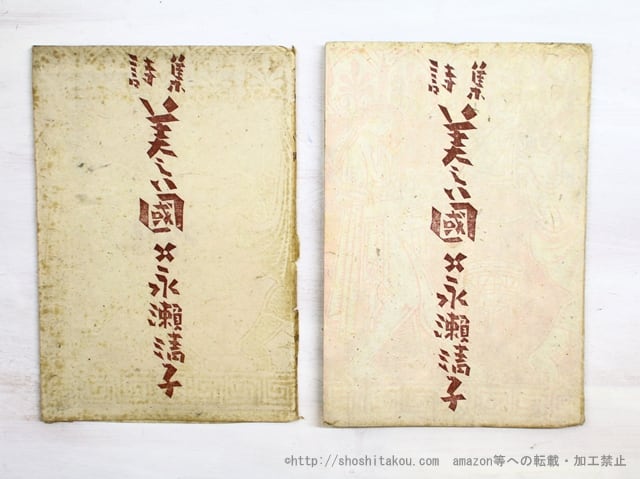 詩集
美しい國
永瀬清子
詩集
美しい國
永瀬清子
©http://shoshitakou.com amazon等への転載・加工禁止